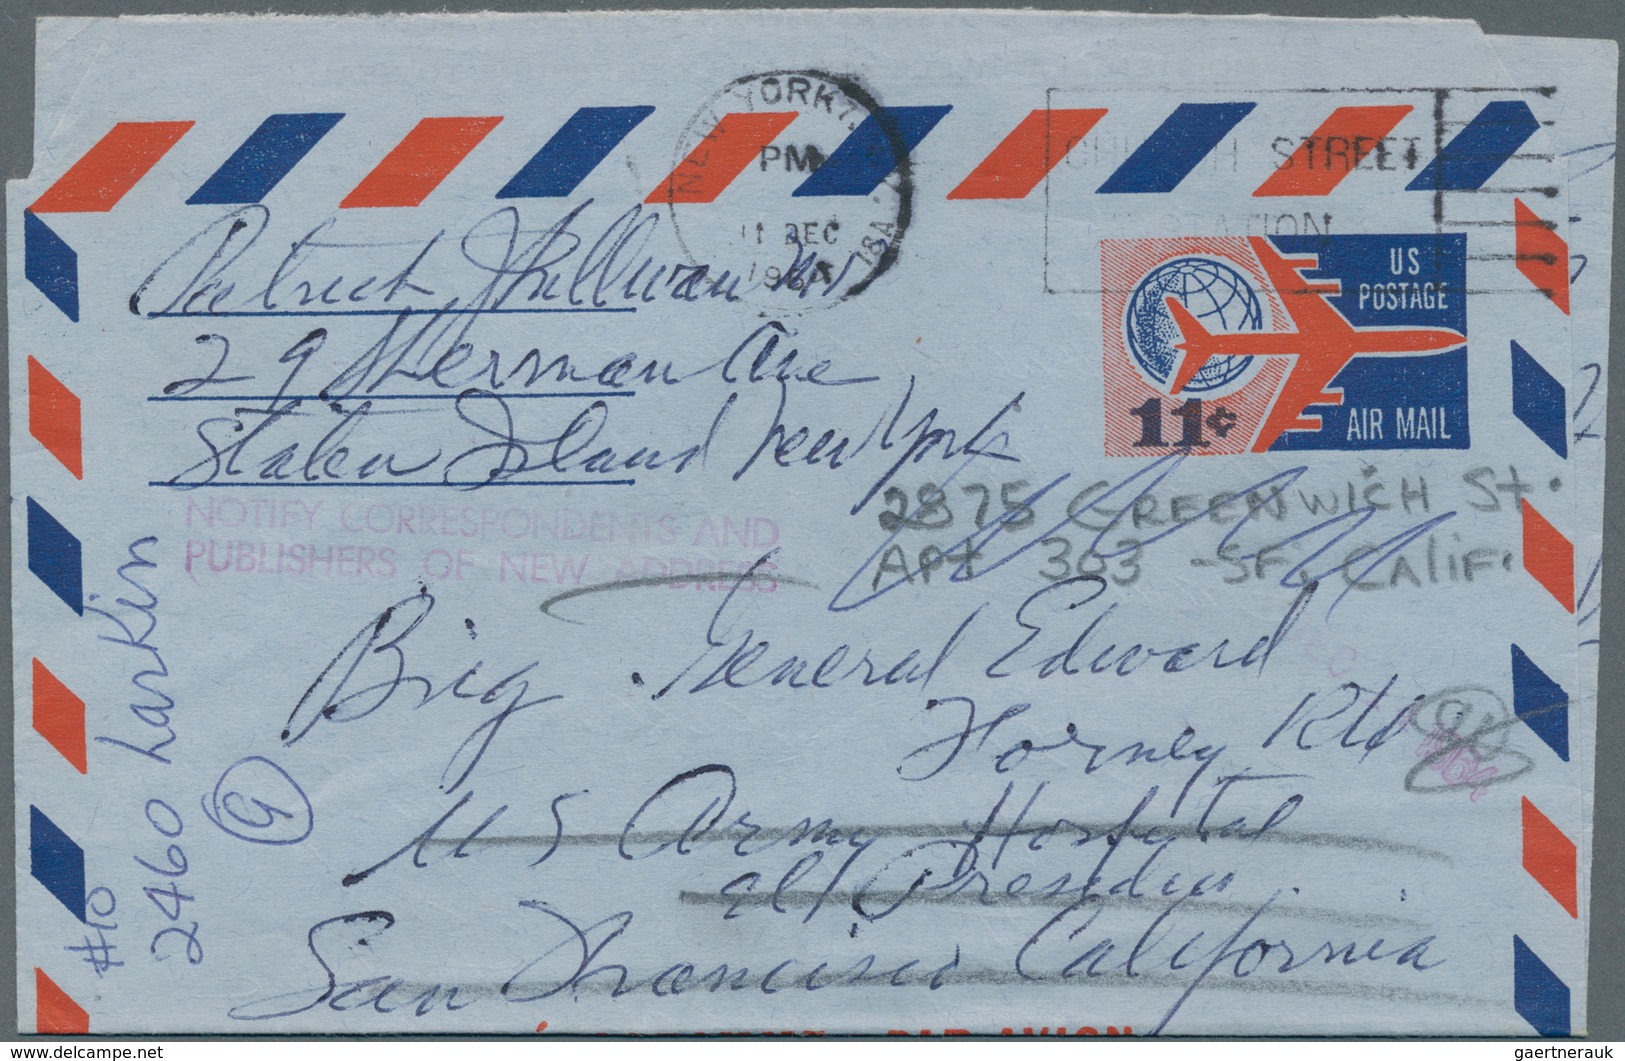 NEW YORK
PM
11 DEC
1964
18A
CHURCH STREET
STATION
US
POSTAGE
11¢
AIR MAIL
Patrick Sullivan
29 Sherman Ave
Staten Island New York
NOTIFY CORRESPONDENTS AND
PUBLISHERS OF NEW ADDRESS
2875 GREENWICH St.
APt 303 - SF, CALIF.
Brig General Edward
Forney Rtd
U S Army Hospital
at Presidio
San Francisco California
#10
2460 Larkin
9
1964
PAR AVION
gaertnerauk